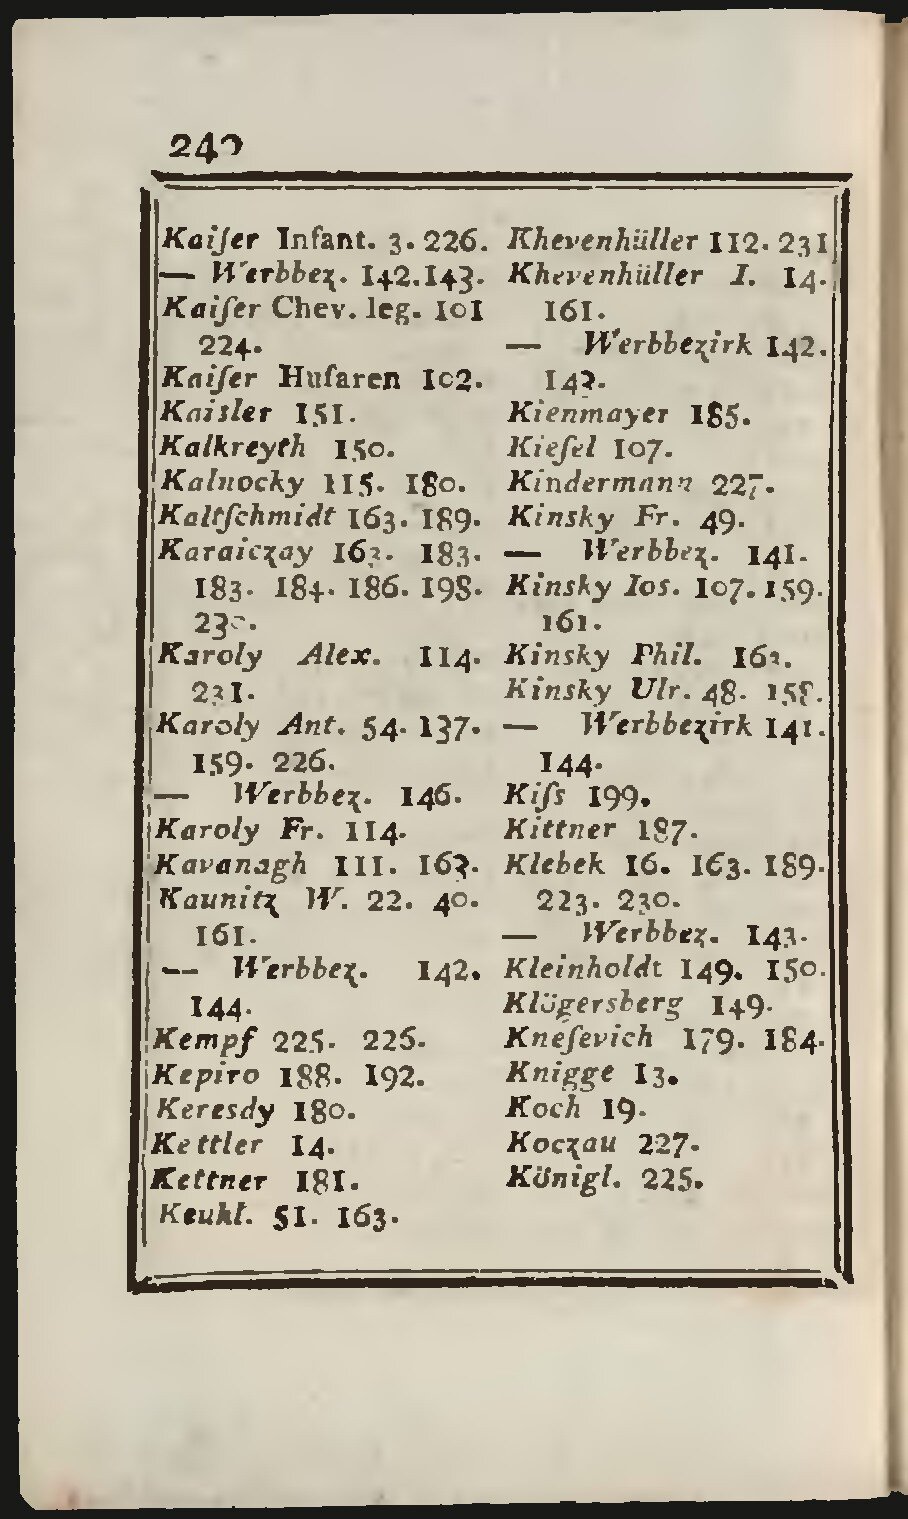 240
Kaiſer Infant. 3. 226.
— Werbbez. 142. 143.
Kaiſer Chev. leg. 101
224.
Kaiſer Huſaren 102.
Kaisler 151.
Kalkreyth 150.
Kalnocky 115. 180.
Kaltſchmidt 163. 189.
Karaiczay 163. 183.
183. 184. 186. 198.
230.
Karoly Alex. 114.
231.
Karoly Ant. 54. 137.
159. 226.
— Werbbez. 146.
Karoly Fr. 114.
Kavanagh 111. 163.
Kaunitz W. 22. 40.
161.
— Werbbez. 142.
144.
Kempf 225. 226.
Kepiro 188. 192.
Keresdy 180.
Kettler 14.
Kettner 181.
Keukl. 51. 163.
Khevenhüller 112. 231
Khevenhüller I. 14.
161.
— Werbbezirk 142.
143.
Kienmayer 185.
Kieſel 107.
Kindermann 227.
Kinsky Fr. 49.
— Werbbez. 141.
Kinsky Ios. 107. 159.
161.
Kinsky Phil. 162.
Kinsky Ulr. 48. 158.
— Werbbezirk 141.
144.
Kiſs 199.
Kittner 187.
Klebek 16. 163. 189.
223. 230.
— Werbbez. 143.
Kleinholdt 149. 150.
Klögersberg 149.
Kneſevich 179. 184.
Knigge 13.
Koch 19.
Koczau 227.
Königl. 225.